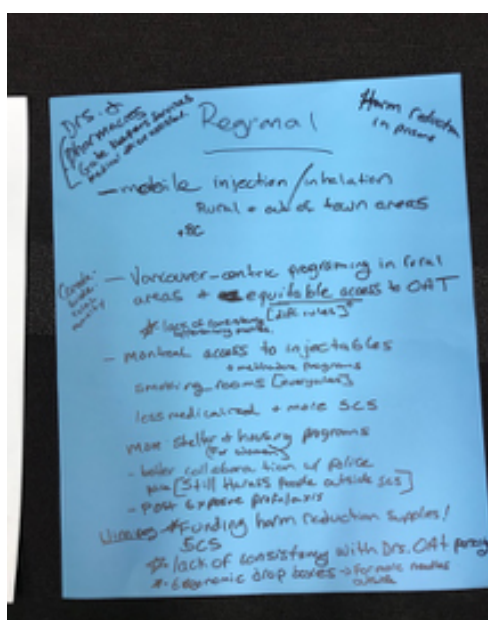 Drs. &
pharmacies
Gate keepers services
Harm reduction
in prisons
Regional
- mobile injection/inhalation
Rural + out of town areas
+BC
- Vancouver-centric programing in rural
areas + equitable access to OAT
* lack of consistency [diff rules]*
- Montreal access to injectables
+ methadone programs
smoking rooms [everywhere]
less medicalized + more SCS
more shelter + housing programs
[for women]
- better collaboration w/ police
[Still Harass people outside SCS]
- Post Exposure profolaxis
*Funding harm reduction supplies!
SCS
*- lack of consistency with Drs. OAT
*- drop boxes -> for more needles
outside